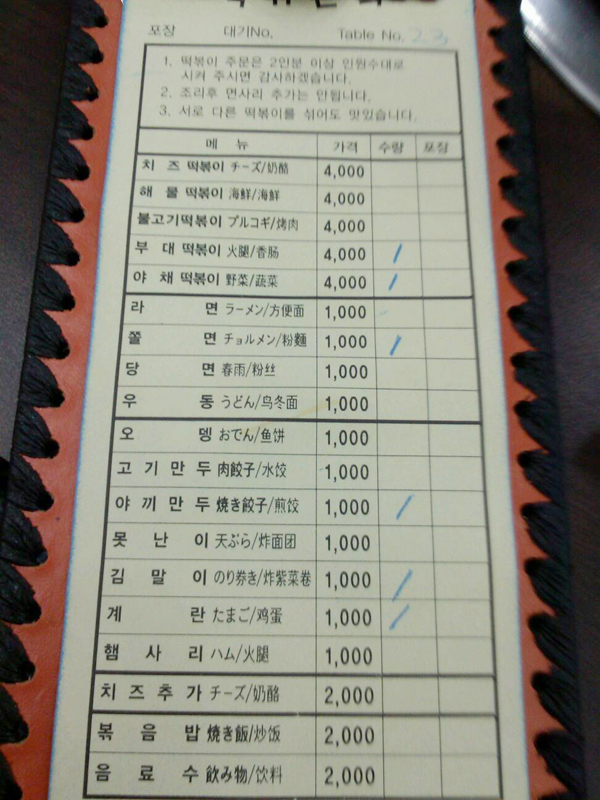 포장 대기No. Table No. 23
1. 떡볶이 주문은 2인분 이상 인원수대로
시켜 주시면 감사하겠습니다.
2. 조리후 면사리 추가는 안됩니다.
3. 서로 다른 떡볶이를 섞어도 맛있습니다.
메 뉴 가격 수량 포장
치 즈 떡볶이 チーズ/奶酪 4,000
해 물 떡볶이 海鮮/海鲜 4,000
불고기떡볶이 プルコギ/烤肉 4,000
부 대 떡볶이 火腿/香肠 4,000 /
야 채 떡볶이 野菜/蔬菜 4,000 /
라 면 ラーメン/方便面 1,000
쫄 면 チョルメン/粉麵 1,000 /
당 면 春雨/粉丝 1,000
우 동 うどん/乌冬面 1,000
오 뎅 おでん/鱼饼 1,000
고 기 만 두 肉餃子/水饺 1,000
야 끼 만 두 焼き餃子/煎饺 1,000 /
못 난 이 天ぷら/炸面团 1,000
김 말 이 のり券き/炸紫菜卷 1,000 /
계 란 たまご/鸡蛋 1,000 /
햄 사 리 ハム/火腿 1,000
치 즈 추 가 チーズ/奶酪 2,000
볶 음 밥 焼き飯/炒饭 2,000
음 료 수 飲み物/饮料 2,000